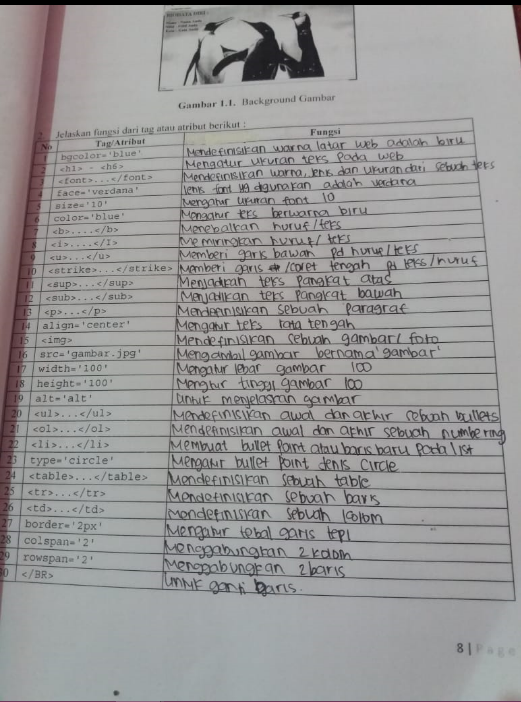 Gambar 1.1. Background Gambar
2. Jelaskan fungsi dari tag atau atribut berikut :
No Tag/Atribut Fungsi
1 bgcolor='blue' Mendefinisikan warna latar web adalah biru
2 <h1> - <h6> Mengatur ukuran teks pada web
3 <font>...</font> Mendefinisikan warna, jenis dan ukuran dari sebuah teks
4 face='verdana' Jenis font yg digunakan adalah verdana
5 size='10' Mengatur ukuran font 10
6 color='blue' Mengatur teks berwarna biru
7 <b>....</b> Menebalkan huruf/teks
8 <i>....</I> Memiringkan huruf/teks
9 <u>...</u> Memberi garis bawah pd huruf/teks
10 <strike>...</strike> Memberi garis /coret tengah pd teks/huruf
11 <sup>...</sup> Menjadikan teks pangkat atas
12 <sub>...</sub> Menjadikan teks pangkat bawah
13 <p>...</p> Mendefinisikan sebuah paragraf
14 align='center' Mengatur teks rata tengah
15 <img> Mendefinisikan sebuah gambar/ foto
16 src='gambar.jpg' gambar bernama 'gambar'
17 width='100' Mengatur lebar gambar 100
18 height='100' Mengtur tinggi gambar 100
19 alt='alt' Untuk menjelaskan gambar
20 <ul>...</ul> Mendefinisikan awal dan akhir sebuah bullets
21 <ol>...</ol> Mendefinisikan awal dan akhir sebuah numbering
22 <li>...</li> Membuat bullet point atau baris baru pada list
23 type='circle' Mengatur bullet point jenis Circle
24 <table>...</table> Mendefinisikan sebuah table
25 <tr>...</tr> Mendefinisikan sebuah baris
26 <td>...</td> Mendefinisikan sebuah kolom
27 border='2px' Mengatur tebal garis tepi
28 colspan='2' Menggabungkan 2 kolom
29 rowspan='2' Menggabungkan 2 baris
30 </BR> Untuk ganti baris.
8 | Page